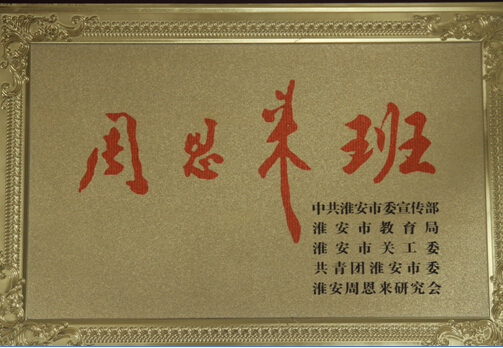 周恩来班
中共淮安市委宣传部
淮安市教育局
淮安市关工委
共青团淮安市委
淮安周恩来研究会